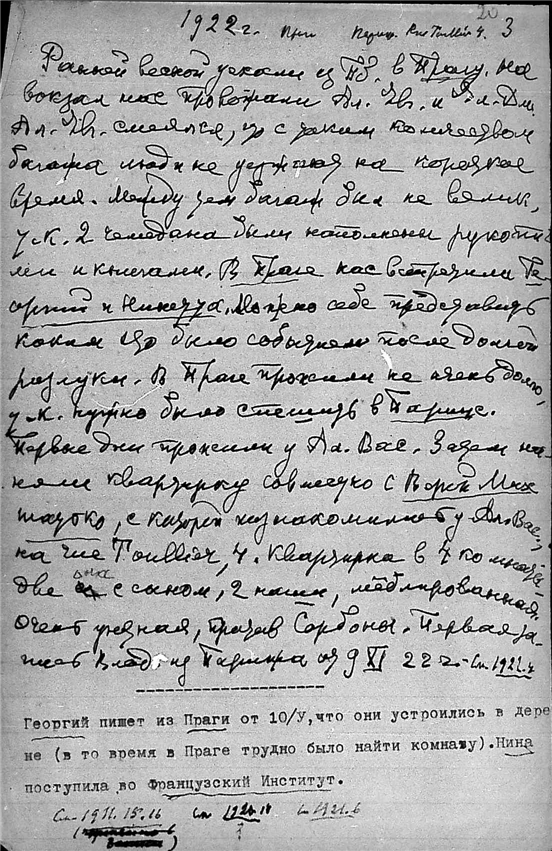 1922 г. Париж. Rue Toullier 4. 3
20
Ранней весной уехали из ПБ. в Прагу. На
вокзал нас провожали Ал. Ев. и Ел. Дм.
Ал. Ев. смеялся, что с таким количеством
багажа люди не уезжают на короткое
время. Между тем багаж был не велик,
т.к. 2 чемодана были наполнены рукопи-
сями и книгами. В Праге нас встретили Ге-
оргий и Ниночка. Можно себе представить
каким это было событием после долгой
разлуки. В Праге прожили не очень долго,
т.к. нужно было спешить в Париж.
Первые дни прожили у Ал. Вас. Затем на-
няли квартирку совместно с
, с которой познакомились у Ал. Вас.,
на rue Toullier, 4. Квартирка в 4 комнаты
две она с сыном, 2 наши, меблированная.
Очень уютная, против Сорбоны. Первая за-
пись Влад. из Парижа от 9 XI 22 г. - См. 1922.4
Георгий пишет из Праги от 10/У, что они устроились в дере
не (в то время в Праге трудно было найти комнату). Нина
поступила во Французский Институт.
См - 1921. 15. 16 См 1921. 18 См 1921. 6